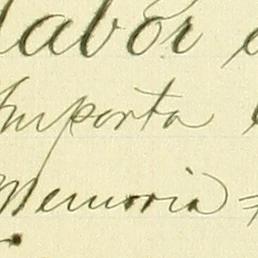 labor
Importa
Memoria